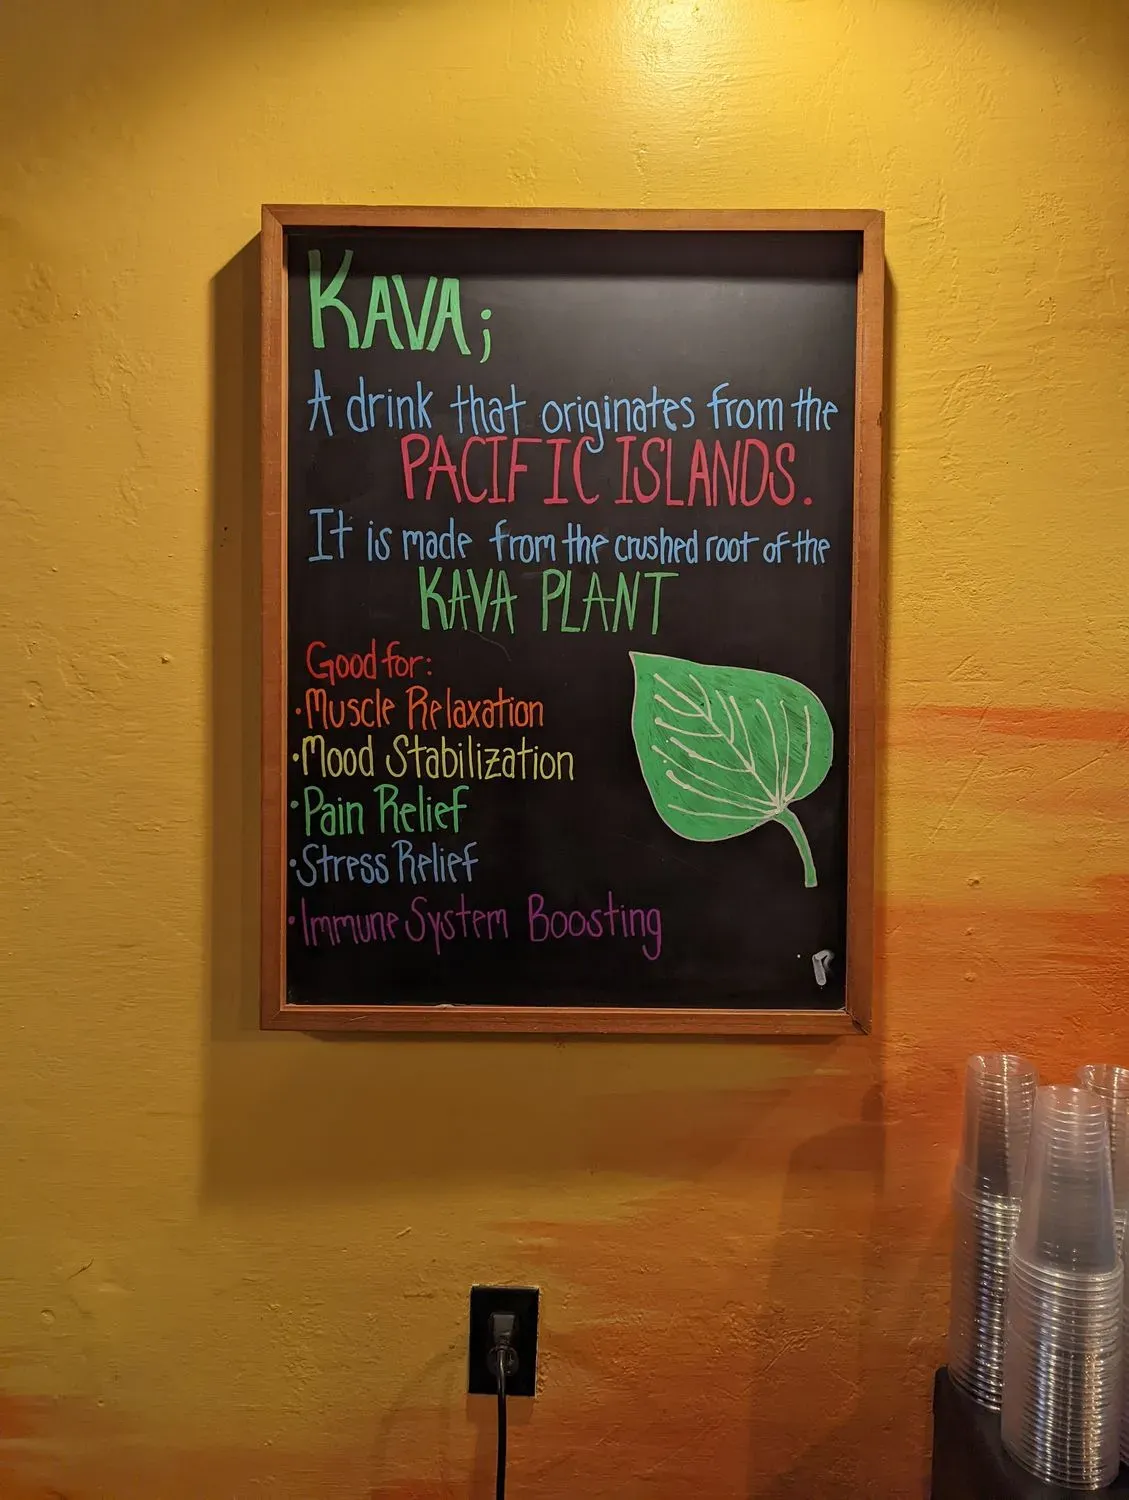 KAVA;
A drink that originates from the
PACIFIC ISLANDS.
It is made from the crushed root of the
KAVA PLANT
Good for:
·Muscle Relaxation
·Mood Stabilization
·Pain Relief
·Stress Relief
·Immune System Boosting